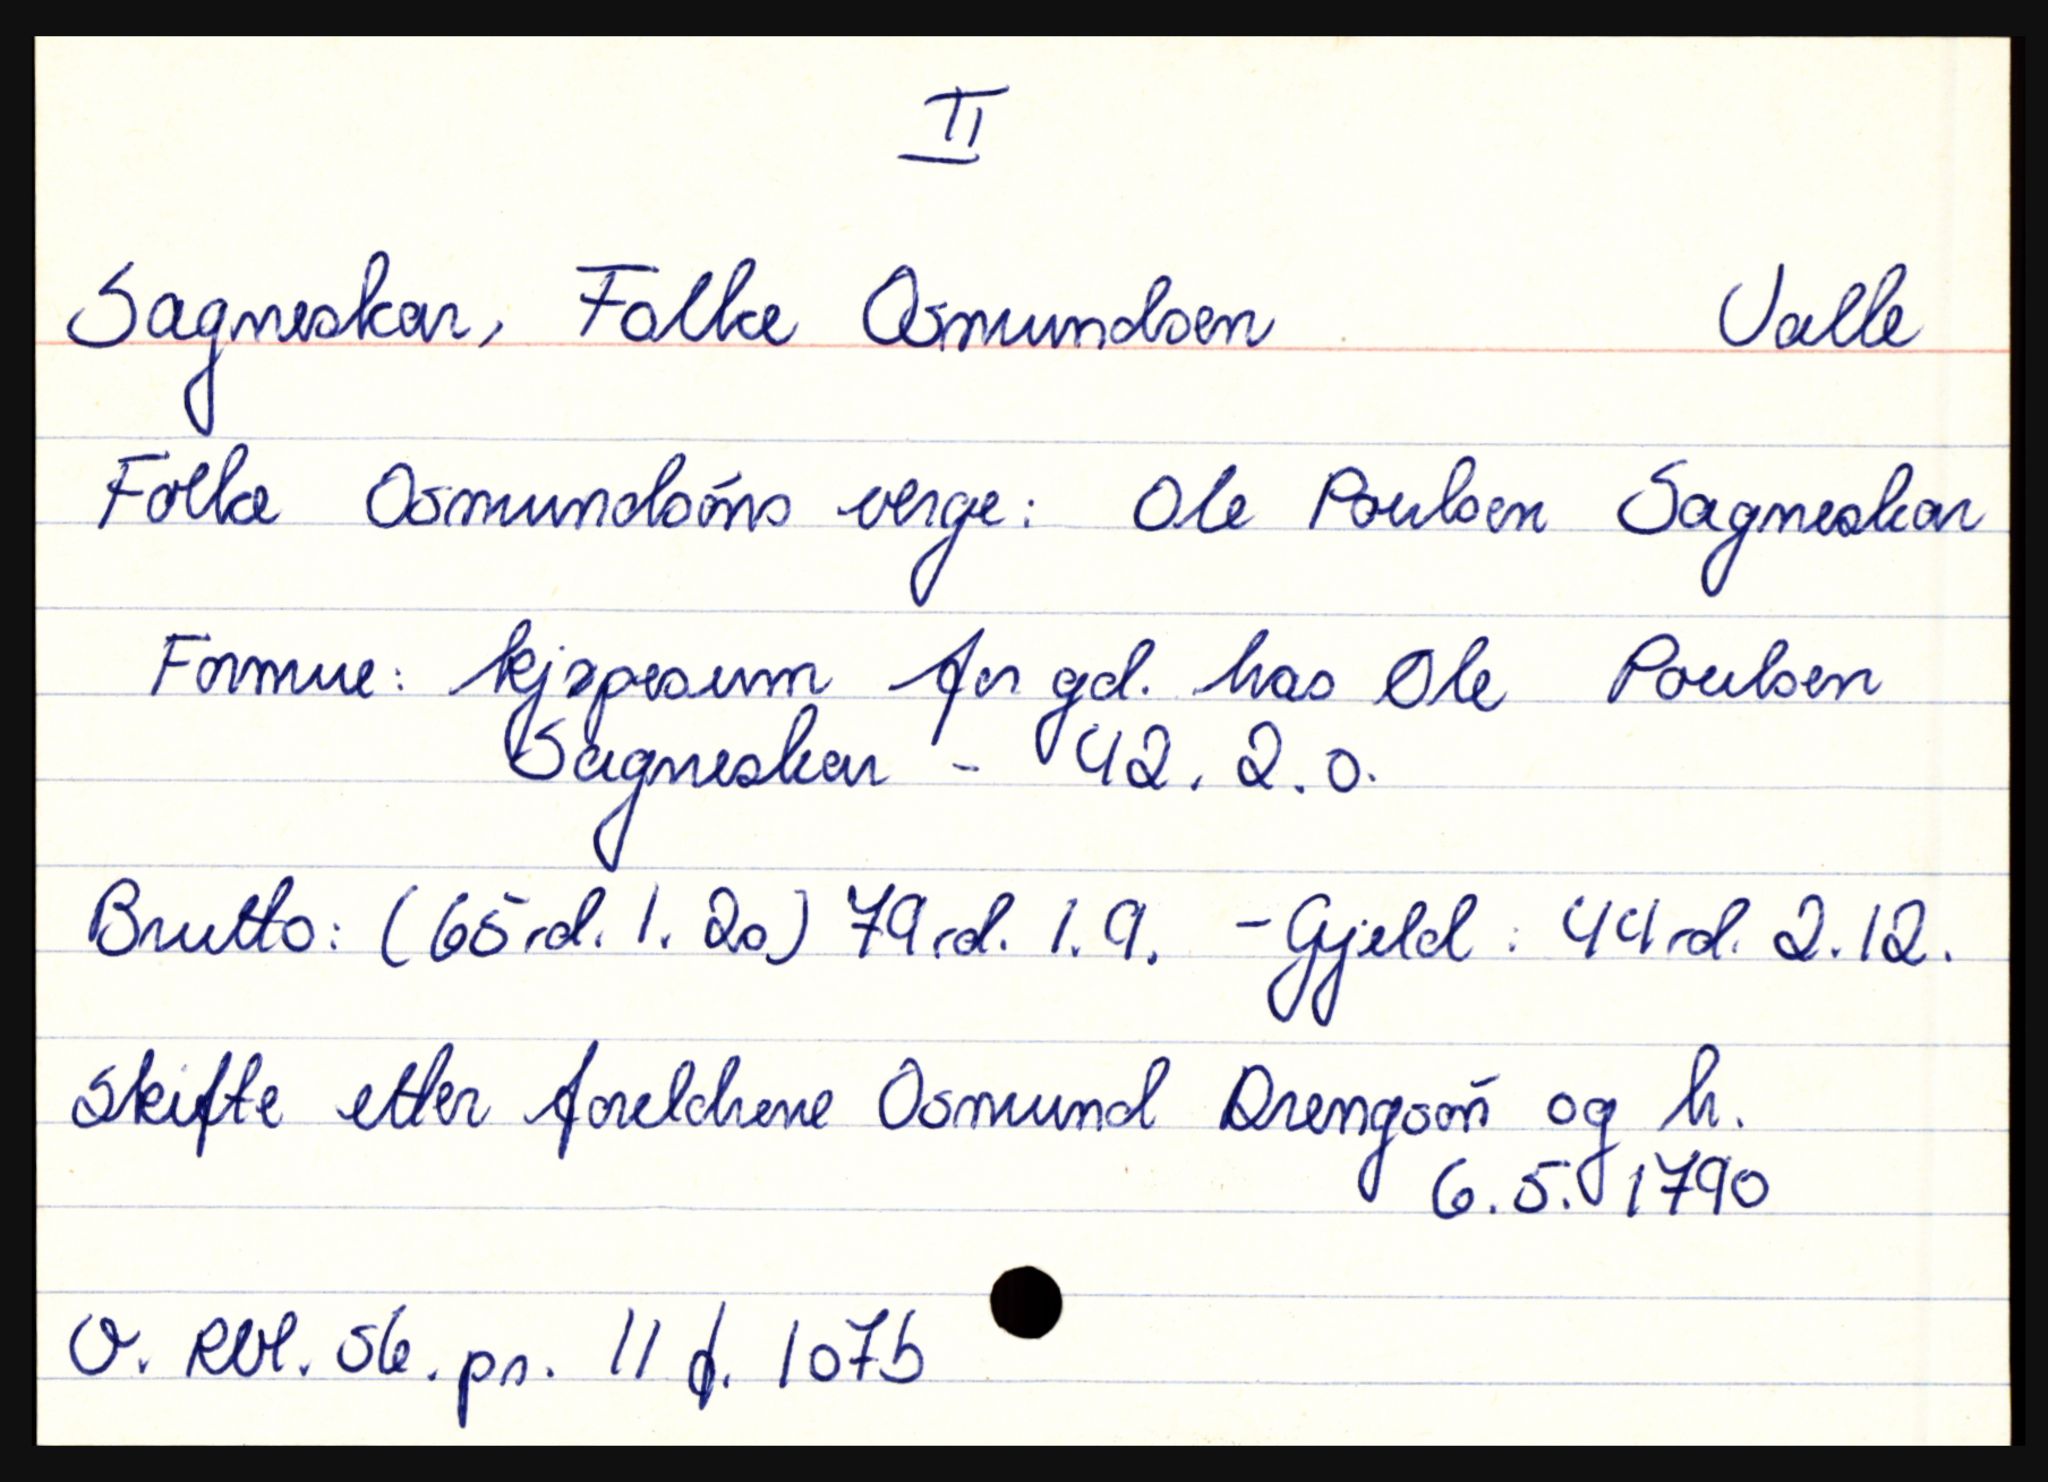 II
Sagneskar, Folke Osmundsen Valle
Folke Osmundsøns verge: Ole Poulsen Sagneskar
Formue: kjøpesum for gd. hos Ole Poulsen
Sagneskar - 42. 2. 0.
Brutto: (65 rd. 1. 20) 79 rd. 1. 9. - Gjeld: 44 rd. 2. 12.
Skifte etter foreldrene Osmund Drengsøn og h.
6. 5. 1790
O. Rbl. 56. pr. 11 f. 107b